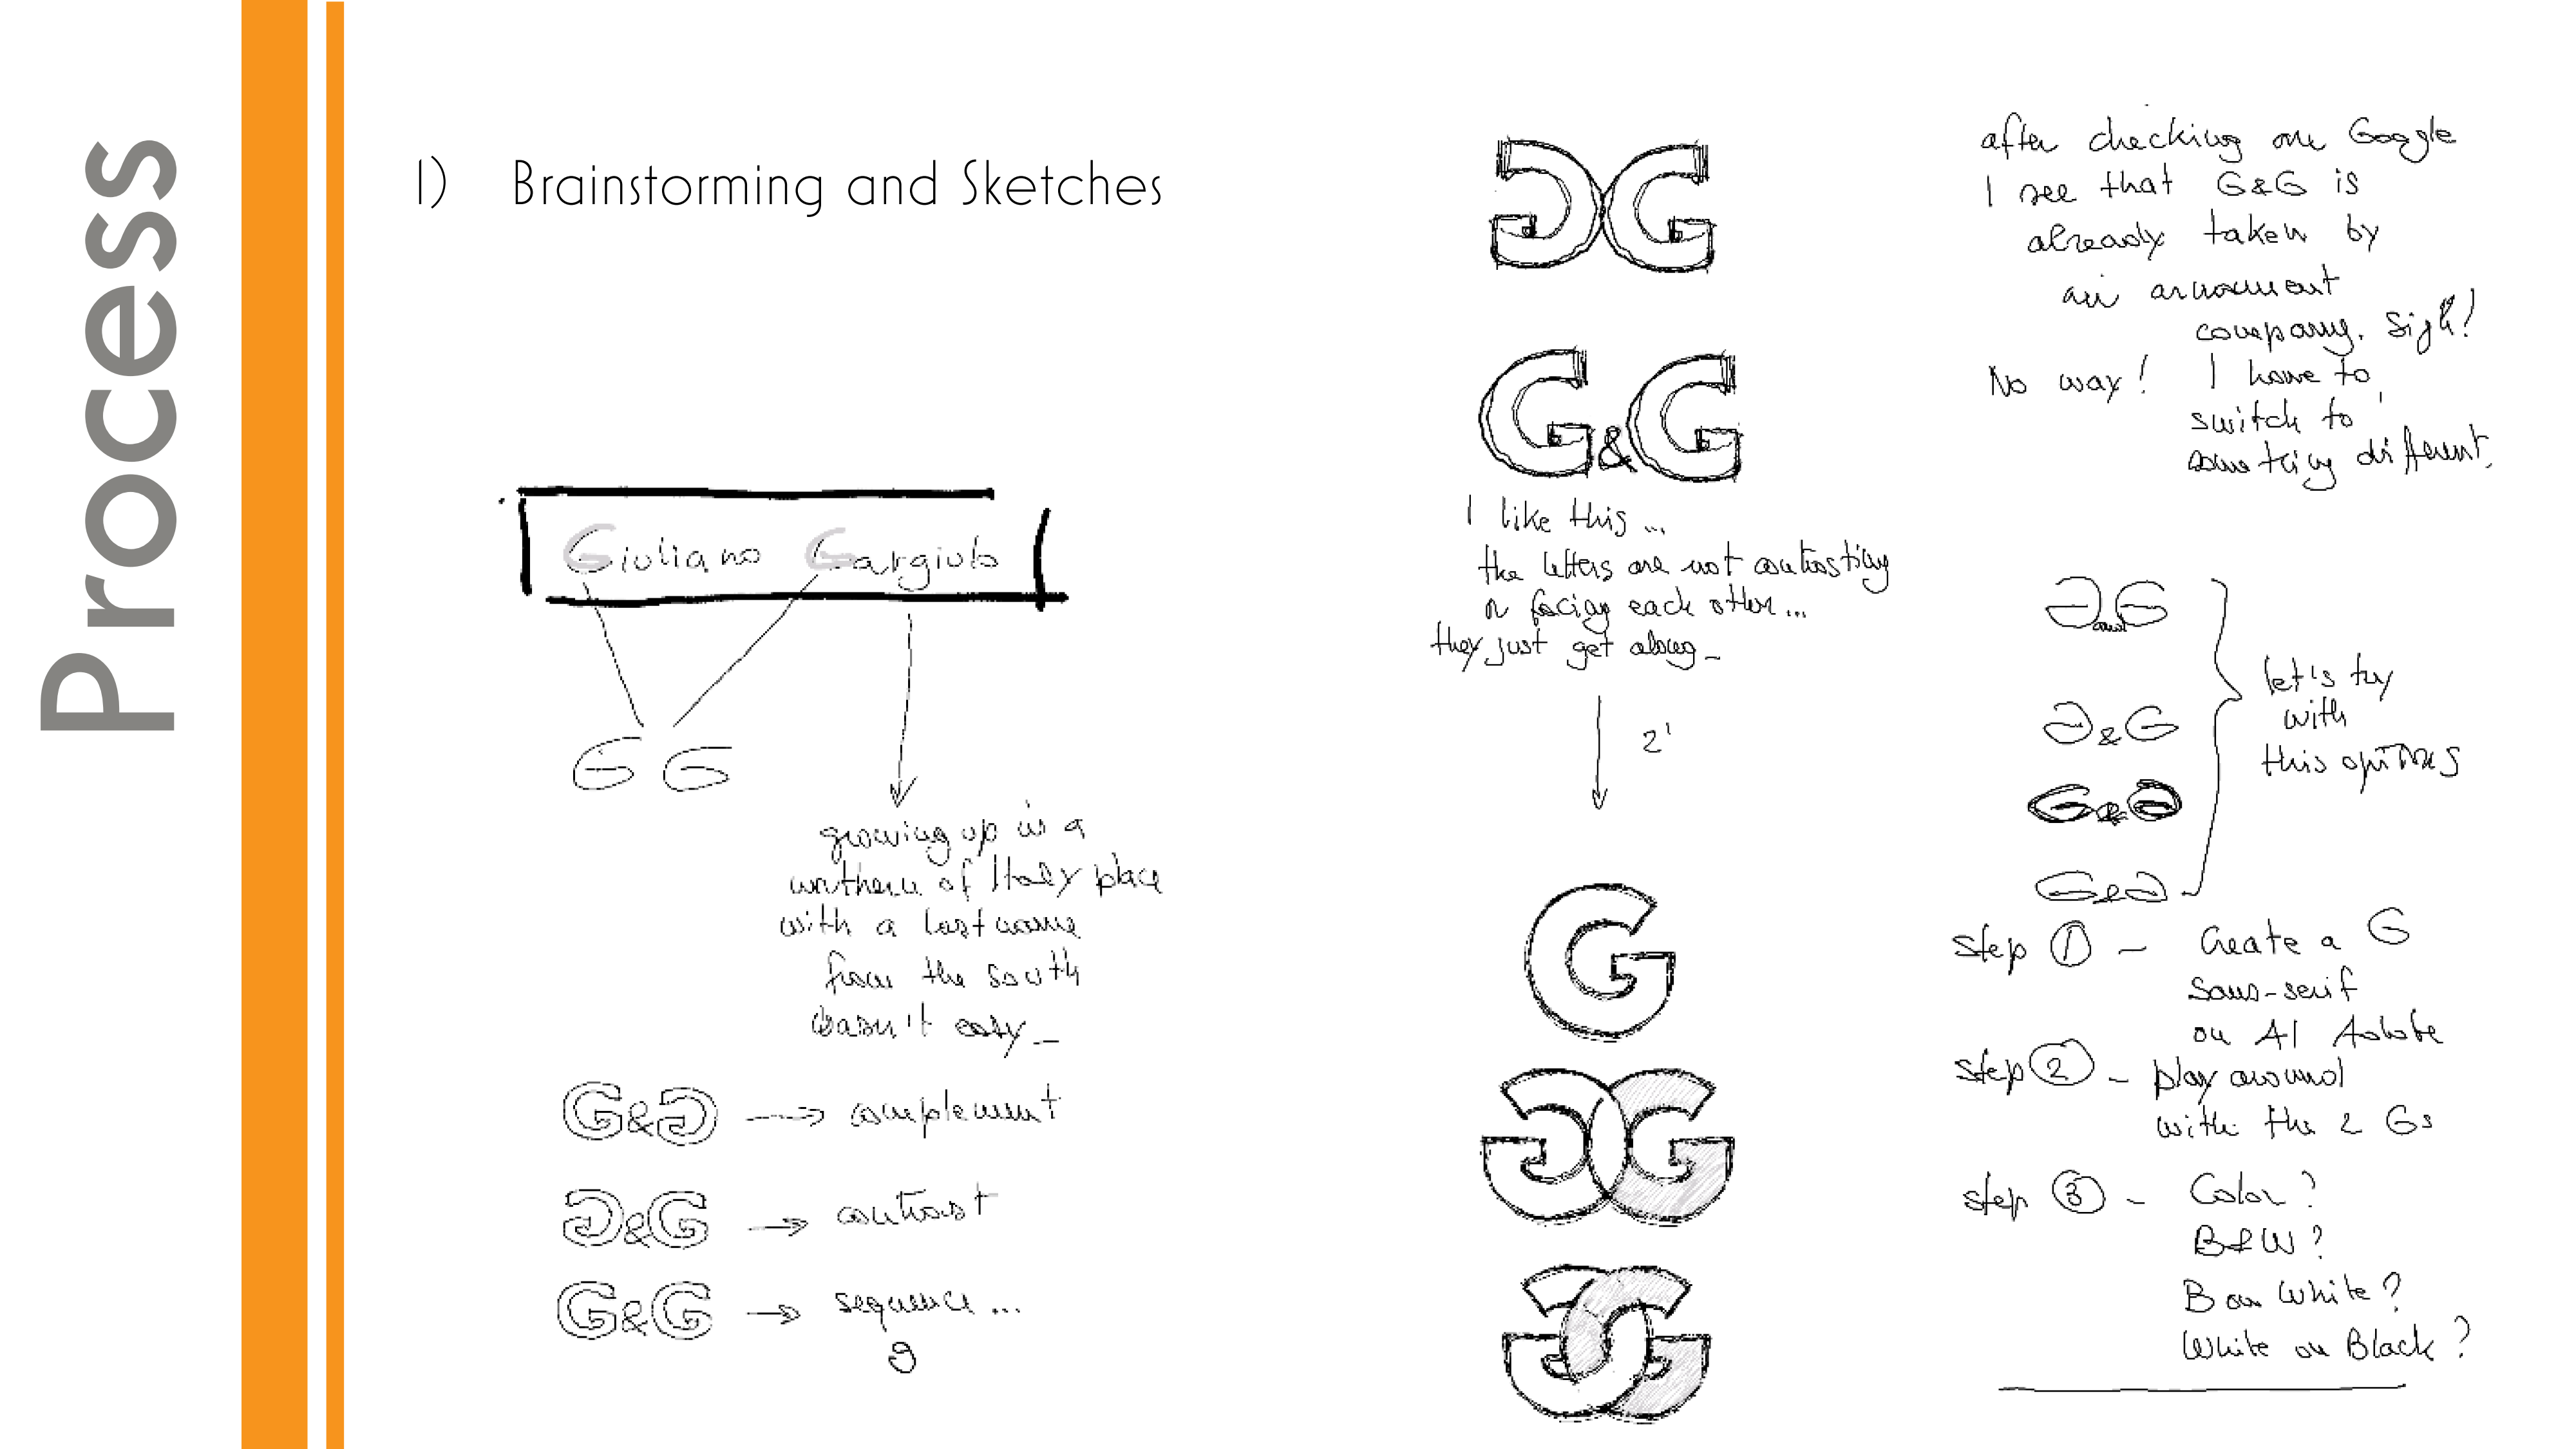 Process
1) Brainstorming and Sketches
Giuliano Gargiulo
G G
growing up in a
northern of Italy place
with a last name
from the south
wasn't easy_
G&G → complement
G&G → contrast
G&G → sequence...
GG
G&G
I like this...
the letters are not contrasting
or facing each other...
they just get along_
2'
G
GG
GG
after checking on Google
I see that G&G is
already taken by
an armament
company. Sigh!
No way! I have to
switch to
something different.
G and G
G&G
G&G
G&G
let's try
with
this options
step 1 - Create a G
sans-serif
on AI Adobe
step 2 - play around
with the 2 Gs
step 3 - Color?
B&W?
B on White?
White on Black?